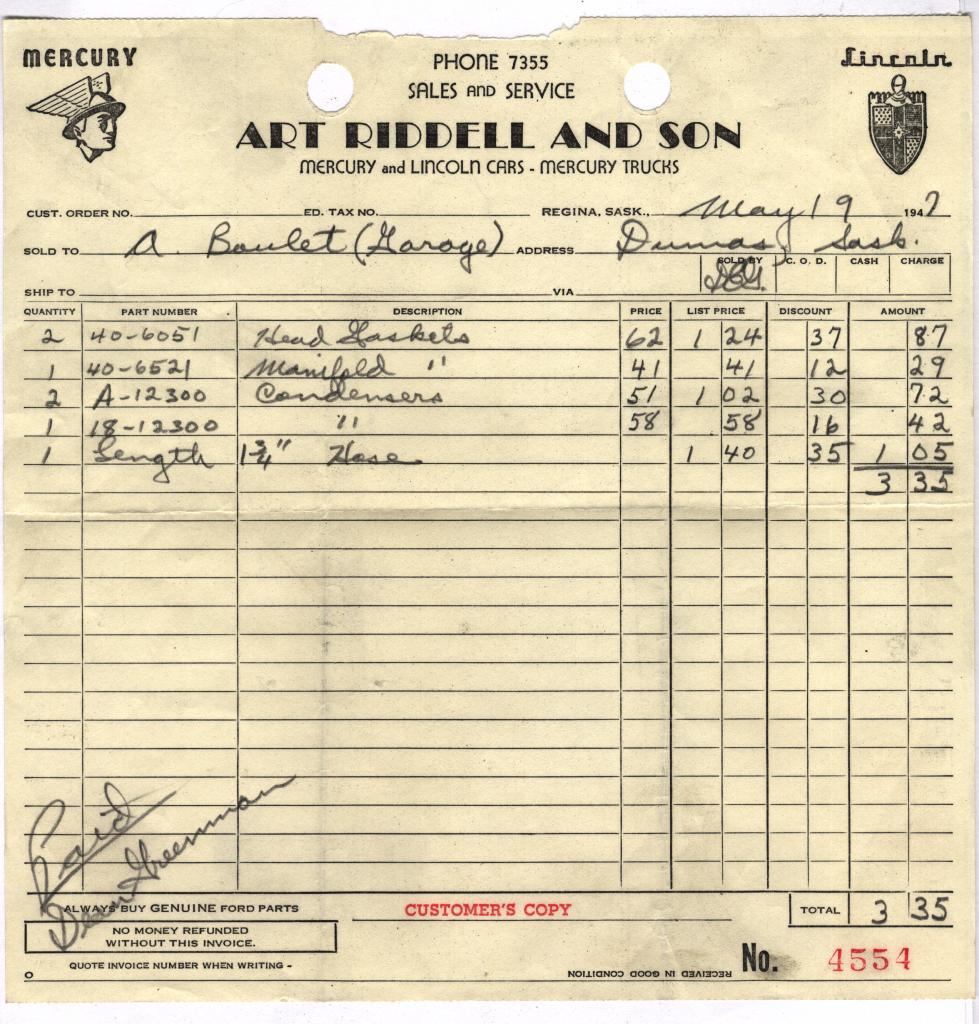 MERCURY
PHONE 7355
Lincoln
SALES AND SERVICE
ART RIDDELL AND SON
MERCURY and LINCOLN CARS - MERCURY TRUCKS
CUST. ORDER NO. ED. TAX NO. REGINA, SASK., May 19 1947
SOLD TO A. Boulet (Garage) ADDRESS Dumas, Sask.
SOLD BY C. O. D. CASH CHARGE
SHIP TO VIA
QUANTITY PART NUMBER DESCRIPTION PRICE LIST PRICE DISCOUNT AMOUNT
2 40-6051 Head Gaskets 62 1 24 37 87
1 40-6521 Manifold " 41 41 12 29
2 A-12300 Condensers 51 1 02 30 72
1 18-12300 " 58 58 16 42
1 Length 1 3/4" Hose 1 40 35 1 05
3 35
Paid
Dean Greenman
ALWAYS BUY GENUINE FORD PARTS
CUSTOMER'S COPY
TOTAL 3 35
NO MONEY REFUNDED
WITHOUT THIS INVOICE.
QUOTE INVOICE NUMBER WHEN WRITING -
RECEIVED IN GOOD CONDITION
No. 4554